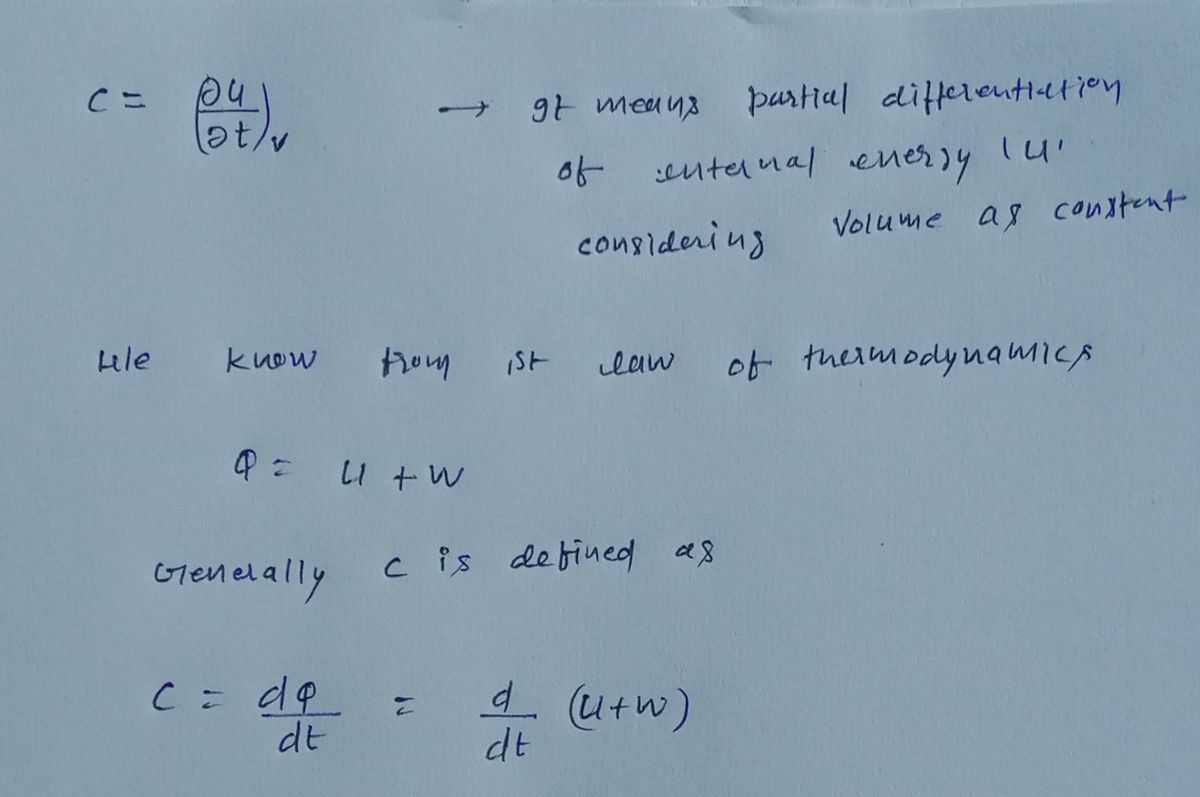 C = (∂u/∂t)v → It means partial differentiation
of internal energy 'u'
considering Volume as constant
We know from 1st law of thermodynamics
Q = U + W
Generally C is defined as
C = dQ/dt = d/dt (U+W)